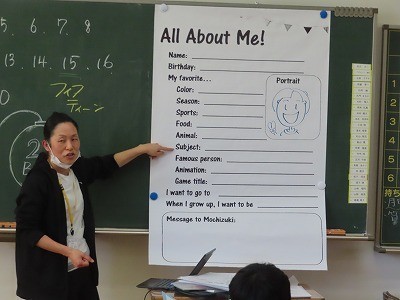 5. 6. 7. 8
13. 14. 15. 16
フィフ
ティーン
All About Me!
Name:
Birthday:
My favorite...
Portrait
Color:
Season:
Sports:
Food:
Animal:
Subject:
Famous person:
Animation:
Game title:
I want to go to
When I grow up, I want to be
Message to Mochizuki:
1
2
3
4
5
6